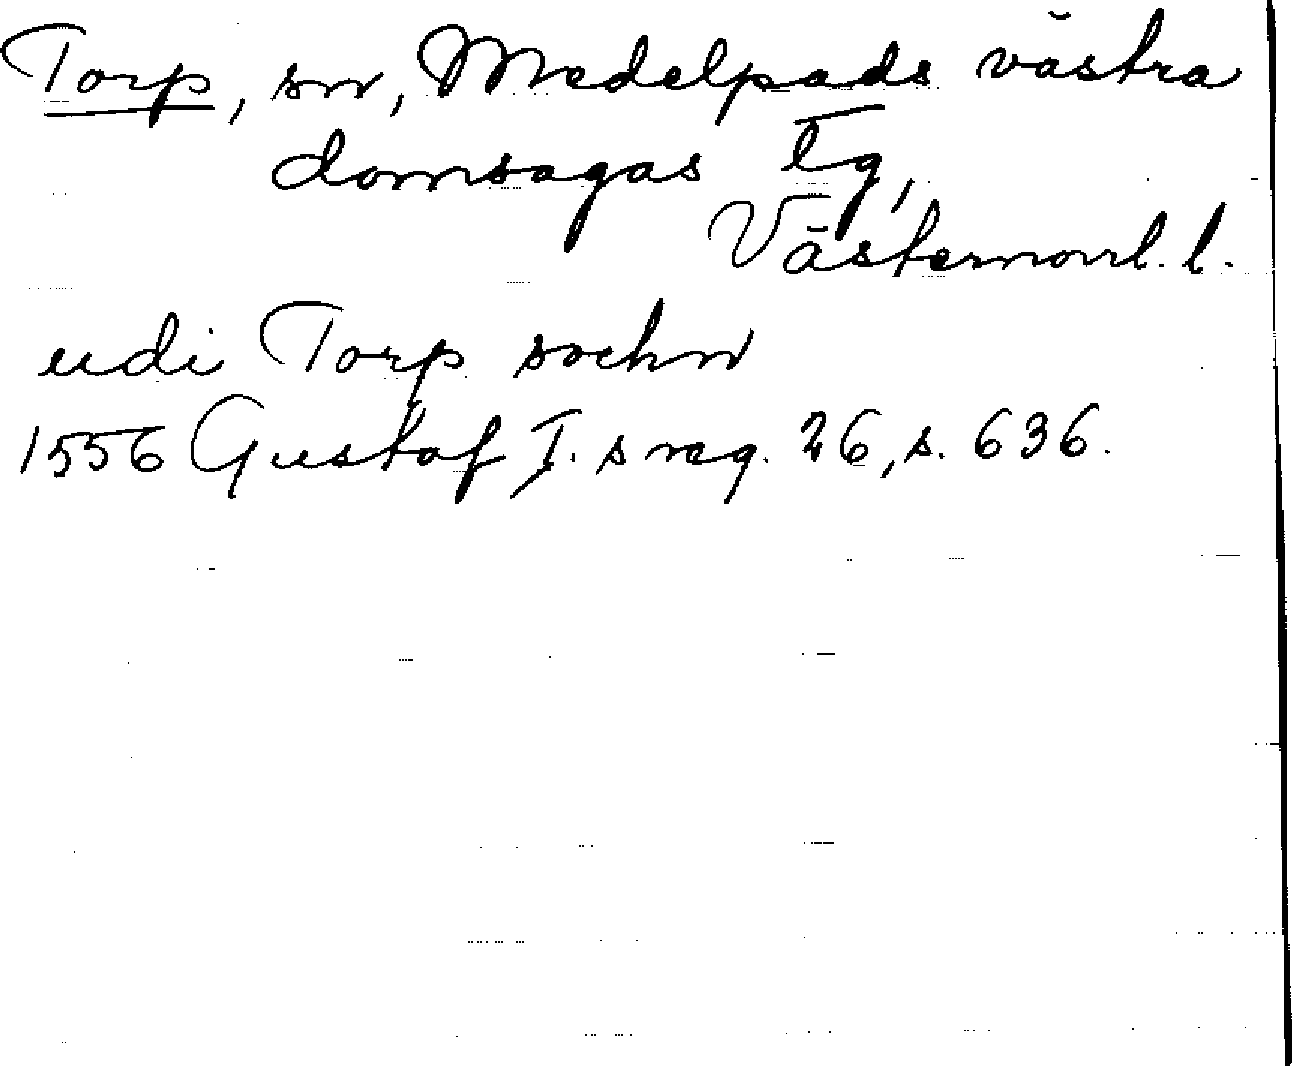 Torp, sn, Medelpads västra
domsagas tg,
Västernorrl. l.
udi Torp sochn
1556 Gustaf I. s reg. 26, s. 636.